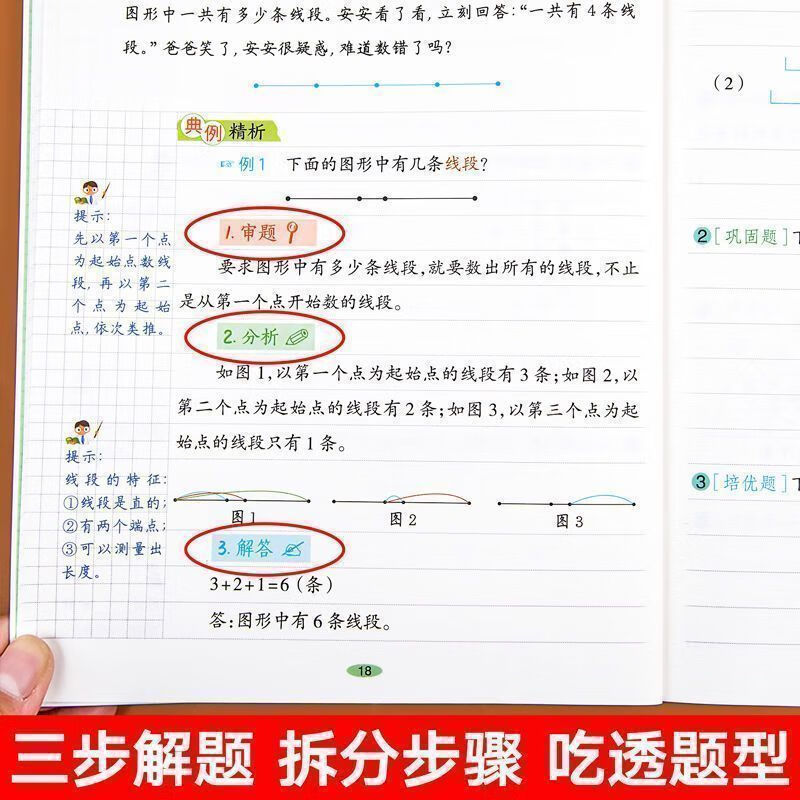 图形中一共有多少条线段。安安看了看,立刻回答:“一共有4条线
段。”爸爸笑了,安安很疑惑,难道数错了吗?
典例精析
例1 下面的图形中有几条线段?
1.审题
要求图形中有多少条线段,就要数出所有的线段,不止
是从第一个点开始数的线段。
2.分析
如图1,以第一个点为起始点的线段有3条;如图2,以
第二个点为起始点的线段有2条;如图3,以第三个点为起
始点的线段只有1条。
图1 图2 图3
3.解答
3+2+1=6(条)
答:图形中有6条线段。
提示:
先以第一个点
为起始点数线
段,再以第二
个点为起始
点,依次类推。
提示:
线段的特征:
①线段是直的;
②有两个端点;
③可以测量出
长度。
18
(2)
2[巩固题]下
3[培优题]下
三步解题 拆分步骤 吃透题型